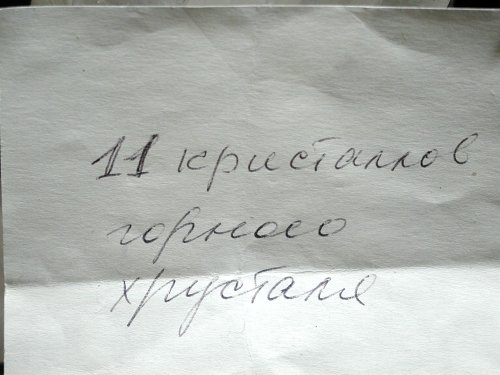 11 кристаллов
горного
хрусталя